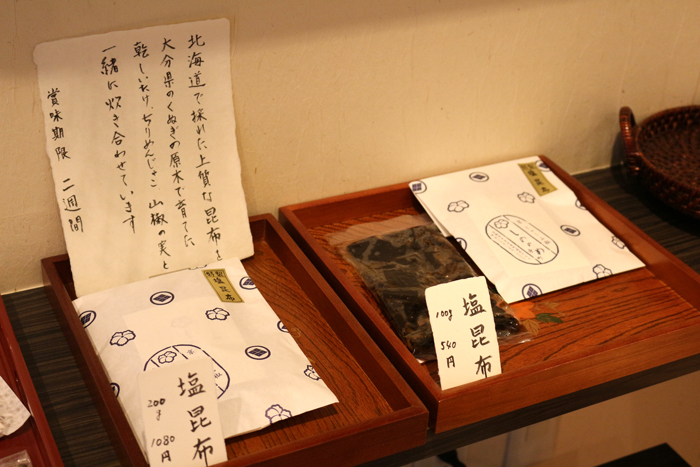 北海道で採れた上質な昆布を
大分県のくぬぎの原木で育てた
乾しいたけ、ちりめんじゃこ、山椒の実と
一緒に炊き合わせています
賞味期限 二週間
特製
塩昆布
塩昆布
200g
1080円
塩昆布
100g
540円